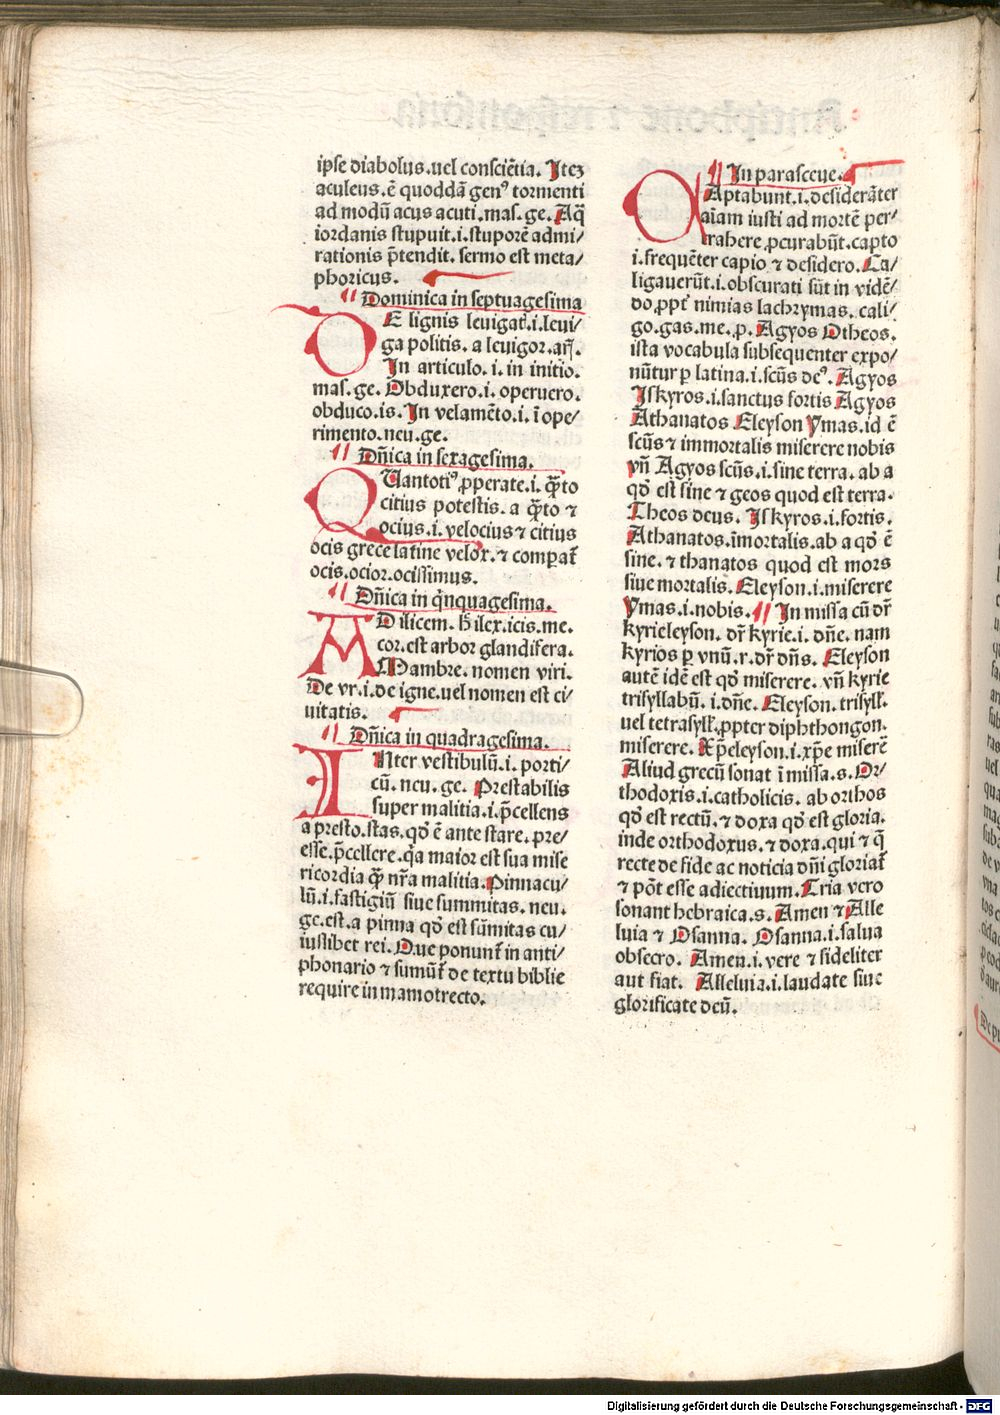 ipse diabolus.vel consciẽtia. Itez
aculeus.ẽ quoddã genꝰ tormenti
ad modũ acus acuti.mas.ge. Aq̃
iordanis stupuit.i.stuporẽ admi/
rationis p̃tendit. sermo est meta/
phoricus.
¶ Dominica in septuagesima
DE lignis leuigat᷑.i.leui/
ga politis. a leuigor.ar̃.
In articulo. i. in initio.
mas.ge. Obduxero.i. operuero.
obduco.is. In velamẽto.i. ĩ ope/
rimento.neu.ge.
¶ Dñica in sexagesima.
QUantotiꝰ ꝓperate.i. q̃to
citius potestis. a q̃to ⁊
ocius.i. velocius ⁊ citius
ocis grece latine velox. ⁊ comparat᷑
ocis.ocior.ocissimus.
¶ Dñica in q̃nquagesima.
AD ilicem. h̃ ilex.icis.me.
cor.est arbor glandifera.
Mambre. nomen viri.
De vr.i.de igne.uel nomen est ci/
uitatis.
¶ Dñica in quadragesima.
INter vestibulũ.i. porti/
cũ. neu. ge. Prestabilis
super malitia.i.p̃cellens
a presto.stas.qď ẽ ante stare. pre/
esse.p̃cellere.q̃a maior est sua mise
ricordia q̃ nr̃a malitia.Pinnacu/
lũ.i.fastigiũ siue summitas. neu.
ge.est.a pinna qď est sũmitas cu/
iuslibet rei. Que ponunt᷑ in anti/
phonario ⁊ sumũt᷑ de textu biblie
require in mamotrecto.
¶ In parasceue.
CAptabunt.i.desiderãter
aĩam iusti ad mortẽ per/
trahere ꝓcurabũt.capto
i.frequẽter capio ⁊ desidero. Ca/
ligauerũt.i.obscurati sũt in vidẽ/
do ꝓpt᷑ nimias lachrymas. cali/
go.gas.me.p. Agyos Otheos.
ista vocabula subsequenter expo/
nũtur ꝑ latina.i.scũs deꝰ. Agyos
Iskyros.i.sanctus fortis Agyos
Athanatos Eleyson ymas.id ẽ
scũs ⁊ immortalis miserere nobis
vñ Agyos scũs.i.sine terra. ab a
qď est sine ⁊ geos quod est terra.
Theos deus. Iskyros.i.fortis.
Athanatos.ĩmortalis.ab a qď ẽ
sine. ⁊ thanatos quod est mors
siue mortalis. Eleyson.i.miserere
ymas.i.nobis. ¶ In missa cũ dr̃
kyrieleyson. dr̃ kyrie.i. dñe. nam
kyrios ꝑ vnũ.r.dr̃ dñs. Eleyson
autẽ idẽ est qď miserere. vñ kyrie
trisyllabũ.i. dñe. Eleyson. trisyll̃.
uel tetrasyll̃.ꝓpter diphthongon.
miserere. Xp̃eleyson.i.xp̃e miserẽ
Aliud grecũ sonat ĩ missa.s. Or/
thodoxis.i.catholicis. ab orthos
qď est rectũ.⁊ doxa qď est gloria.
inde orthodoxus.⁊ doxa.qui ⁊ q̃
recte de fide ac noticia dñi gloriat᷑
⁊ põt esse adiectiuum.Tria vero
sonant hebraica.s. Amen ⁊ Alle
luia ⁊ Osanna. Osanna.i.salua
obsecro. Amen.i. vere ⁊ fideliter
aut fiat. Alleluia.i.laudate siue
glorificate deũ.
Digitalisierung gefördert durch die Deutsche Forschungsgemeinschaft - DFG